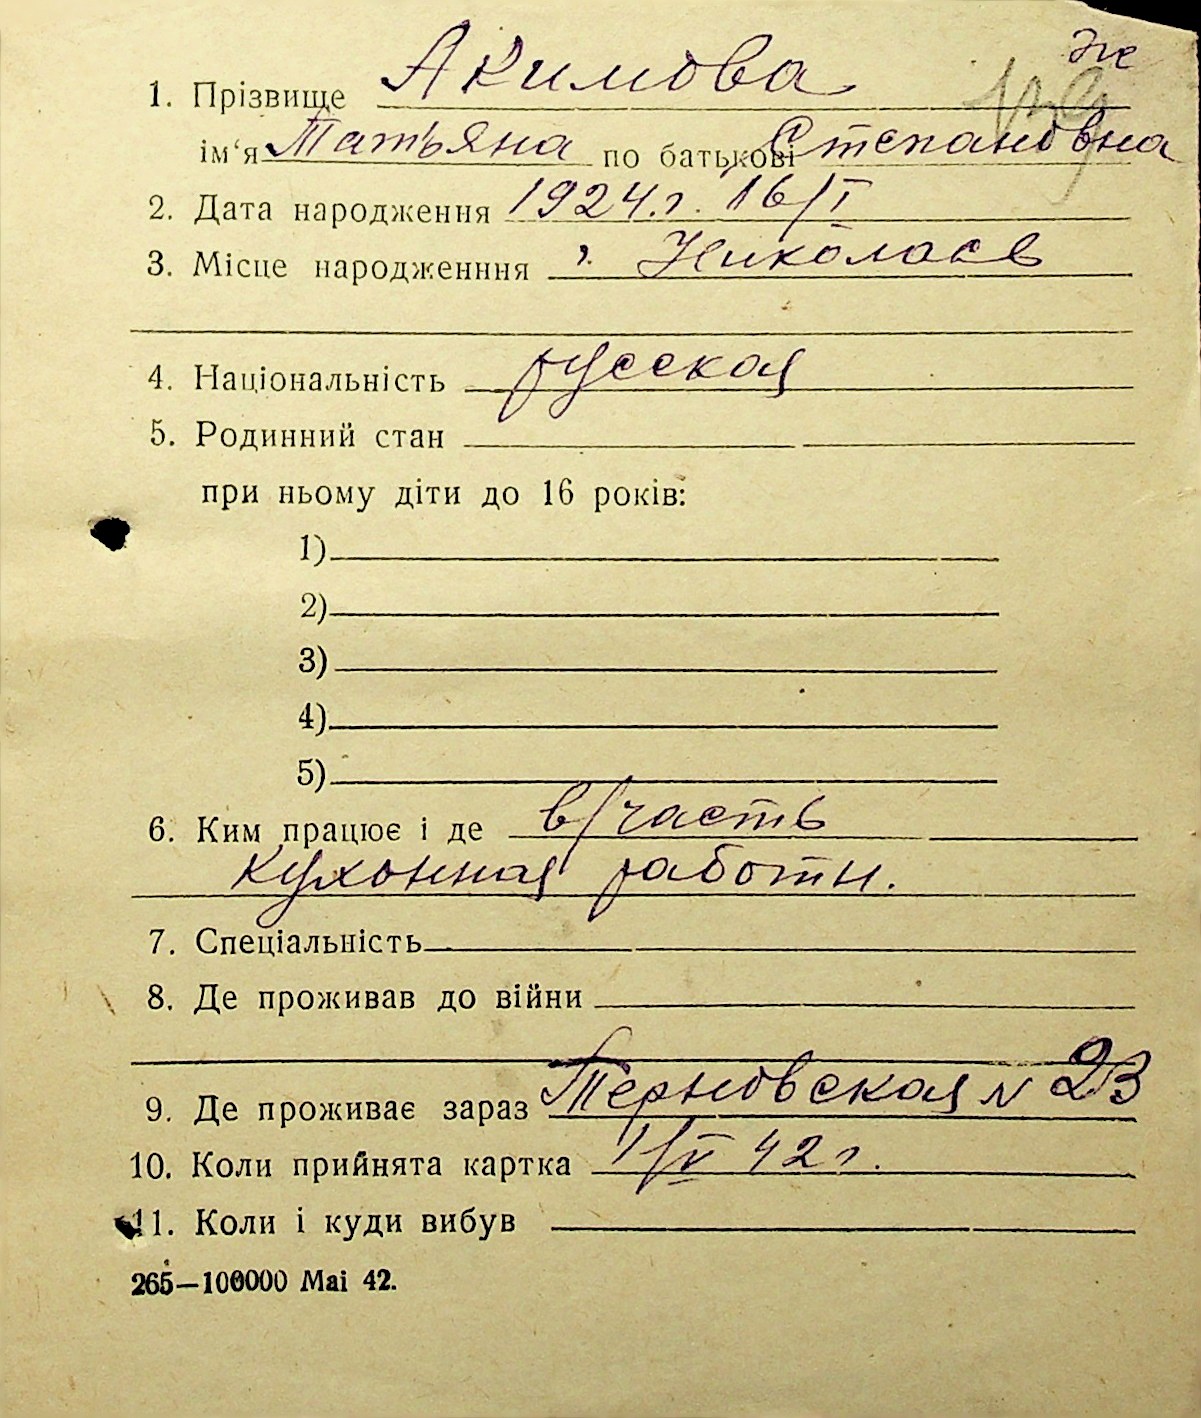 ж
1. Прізвище Акимова
ім‘я Татьяна по батькові Степановна
2. Дата народження 1924.г. 16/I
3. Місце народженння г. Николаев
4. Національність русская
5. Родинний стан
при ньому діти до 16 років:
1)
2)
3)
4)
5)
6. Ким працює і де в/часть
кухонная работн.
7. Спеціальність
8. Де проживав до війни
9. Де проживає зараз Терновская N 23
10. Коли прийнята картка 1/V 42 г.
11. Коли і куди вибув
265—100000 Mai 42.